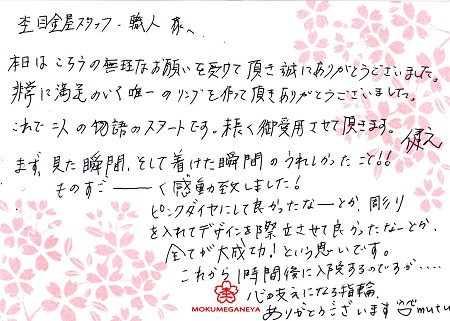 杢目金屋スタッフ・職人様へ
本日はこちらの無理なお願いを受けて頂き誠にありがとうございました。
非常に満足のいく唯一のリングを作って頂きありがとうございました。
これで二人の物語のスタートです。末長く御愛用させて頂きます。
まず、見た瞬間、そして着けた瞬間のうれしかったこと!!
ものすごーーく感動致しました!
ピンクダイヤにして良かったなーとか、彫り
を入れてデザインを際立させて良かったなーとか、
全てが大成功!という思いです。
これから1時間後に入院するのですが‥‥
心の支えになる指輪、
ありがとうございます
mutu
MOKUMEGANEYA